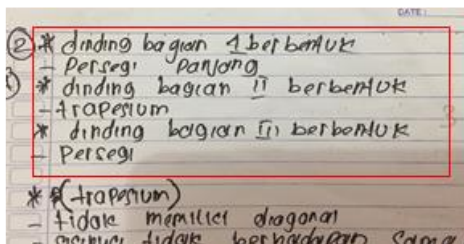 DATE:
② * dinding bagian 1 berbentuk
- Persegi Panjang
* dinding bagian II berbentuk
- trapesium
* dinding bagian III berbentuk
- Persegi
* (trapesium)
- tidak memiliki diagonal
tidak berhadapan sama